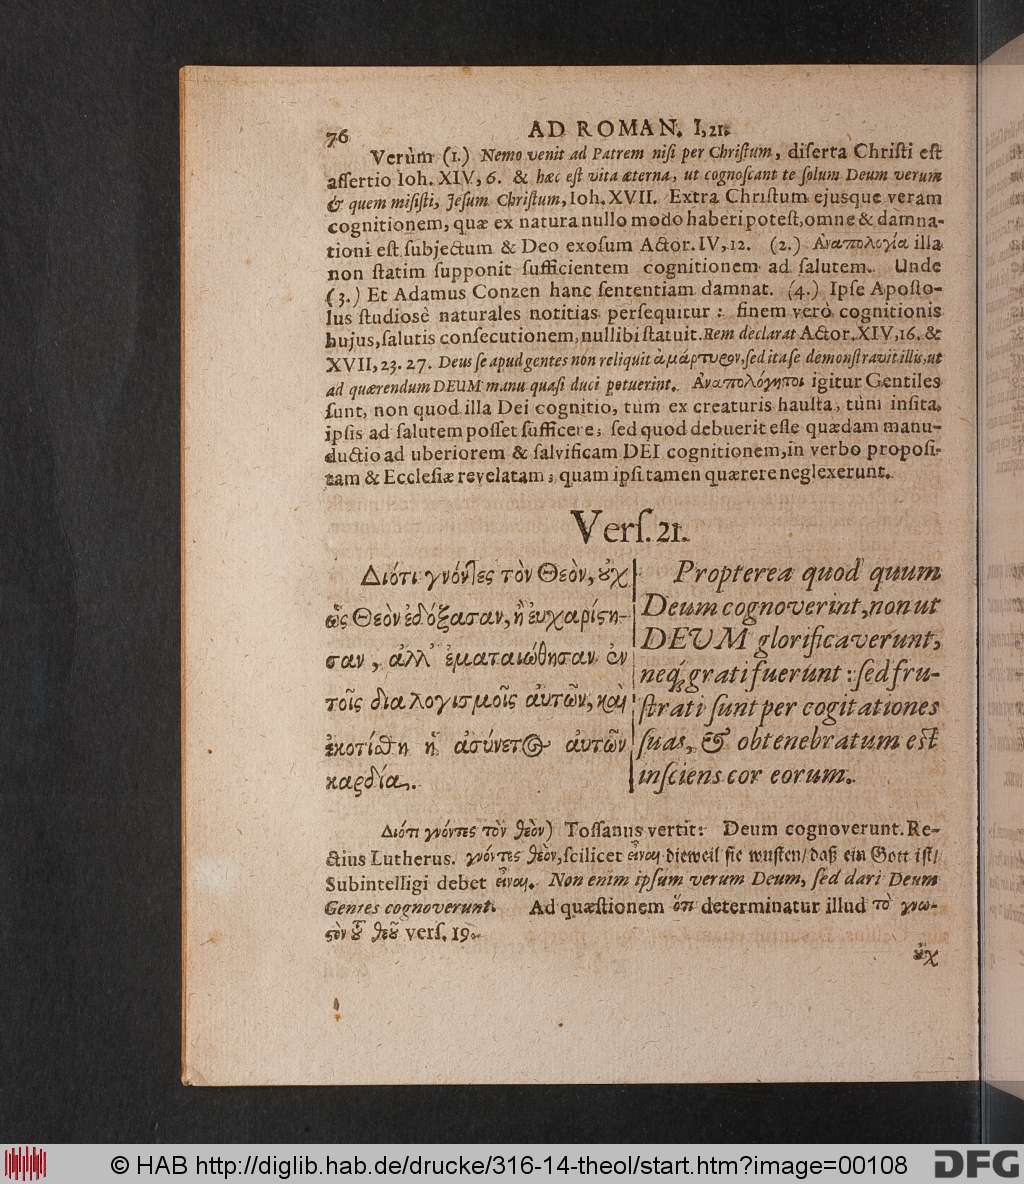 76
AD ROMAN. I, 21.
Verùm (1.) Nemo venit ad Patrem niſi per Chriſtum, diſerta Chriſti eſt
aſſertio Ioh. XIV, 6. & hæc eſt vita æterna, ut cognoſcant te ſolum Deum verum
& quem miſiſti, Jeſum Chriſtum, Ioh. XVII. Extra Chriſtum ejusque veram
cognitionem, quæ ex natura nullo modo haberi poteſt, omne & damna-
tioni eſt ſubjectum & Deo exoſum Actor. IV, 12. (2.) Ἀναπολογία illa
non ſtatim ſupponit ſufficientem cognitionem ad ſalutem. Unde
(3.) Et Adamus Conzen hanc ſententiam damnat. (4.) Ipſe Apoſto-
lus ſtudioſè naturales notitias perſequitur: finem verò cognitionis
hujus, ſalutis conſecutionem, nullibi ſtatuit. Rem declarat Actor. XIV, 16. &
XVII, 23. 27. Deus ſe apud gentes non reliquit ἀμάρτυρον, ſed ita ſe demonſtravit illis, ut
ad quærendum DEUM manu quaſi duci potuerint. Ἀναπολόγητοι igitur Gentiles
ſunt, non quod illa Dei cognitio, tum ex creaturis hauſta, tùm inſita,
ipſis ad ſalutem poſſet ſufficere; ſed quod debuerit eſſe quædam manu-
ductio ad uberiorem & ſalvificam DEI cognitionem, in verbo propoſi-
tam & Eccleſiæ revelatam; quam ipſi tamen quærere neglexerunt.
Verſ. 21.
Διότι γνόντες τὸν Θεὸν, ȣ̓χ
ὡς Θεὸν ἐδόξασαν, ἢ ἐυχαρίϛη-
σαν, ἀλλ' ἐματαιώθησαν ἐν
τοῖς διαλογισμοῖς ἀυτῶν, καὶ
ἐκοτίϑη ἡ ἀσύνετος ἀυτῶν
καρδία.
Propterea quod quum
Deum cognoverint, non ut
DEUM glorificaverunt,
neq; grati fuerunt: ſed fru-
ſtrati ſunt per cogitationes
ſuas, & obtenebratum eſt
inſciens cor eorum.
Διότι γνόντες τὸν θεὸν) Toſſanus vertit: Deum cognoverunt. Re-
ctius Lutherus. γνόντες θεὸν, ſcilicet εἶναι dieweil ſie wuſten/ daß ein Gott iſt/
Subintelligi debet εἶναι. Non enim ipſum verum Deum, ſed dari Deum
Gentes cognoverunt. Ad quæſtionem ὅτι determinatur illud τὸ γνω-
ϛὸν τȣ͂ θεȣ͂ verſ. 19.
ȣ̓χ
© HAB http://diglib.hab.de/drucke/316-14-theol/start.htm?image=00108
DFG